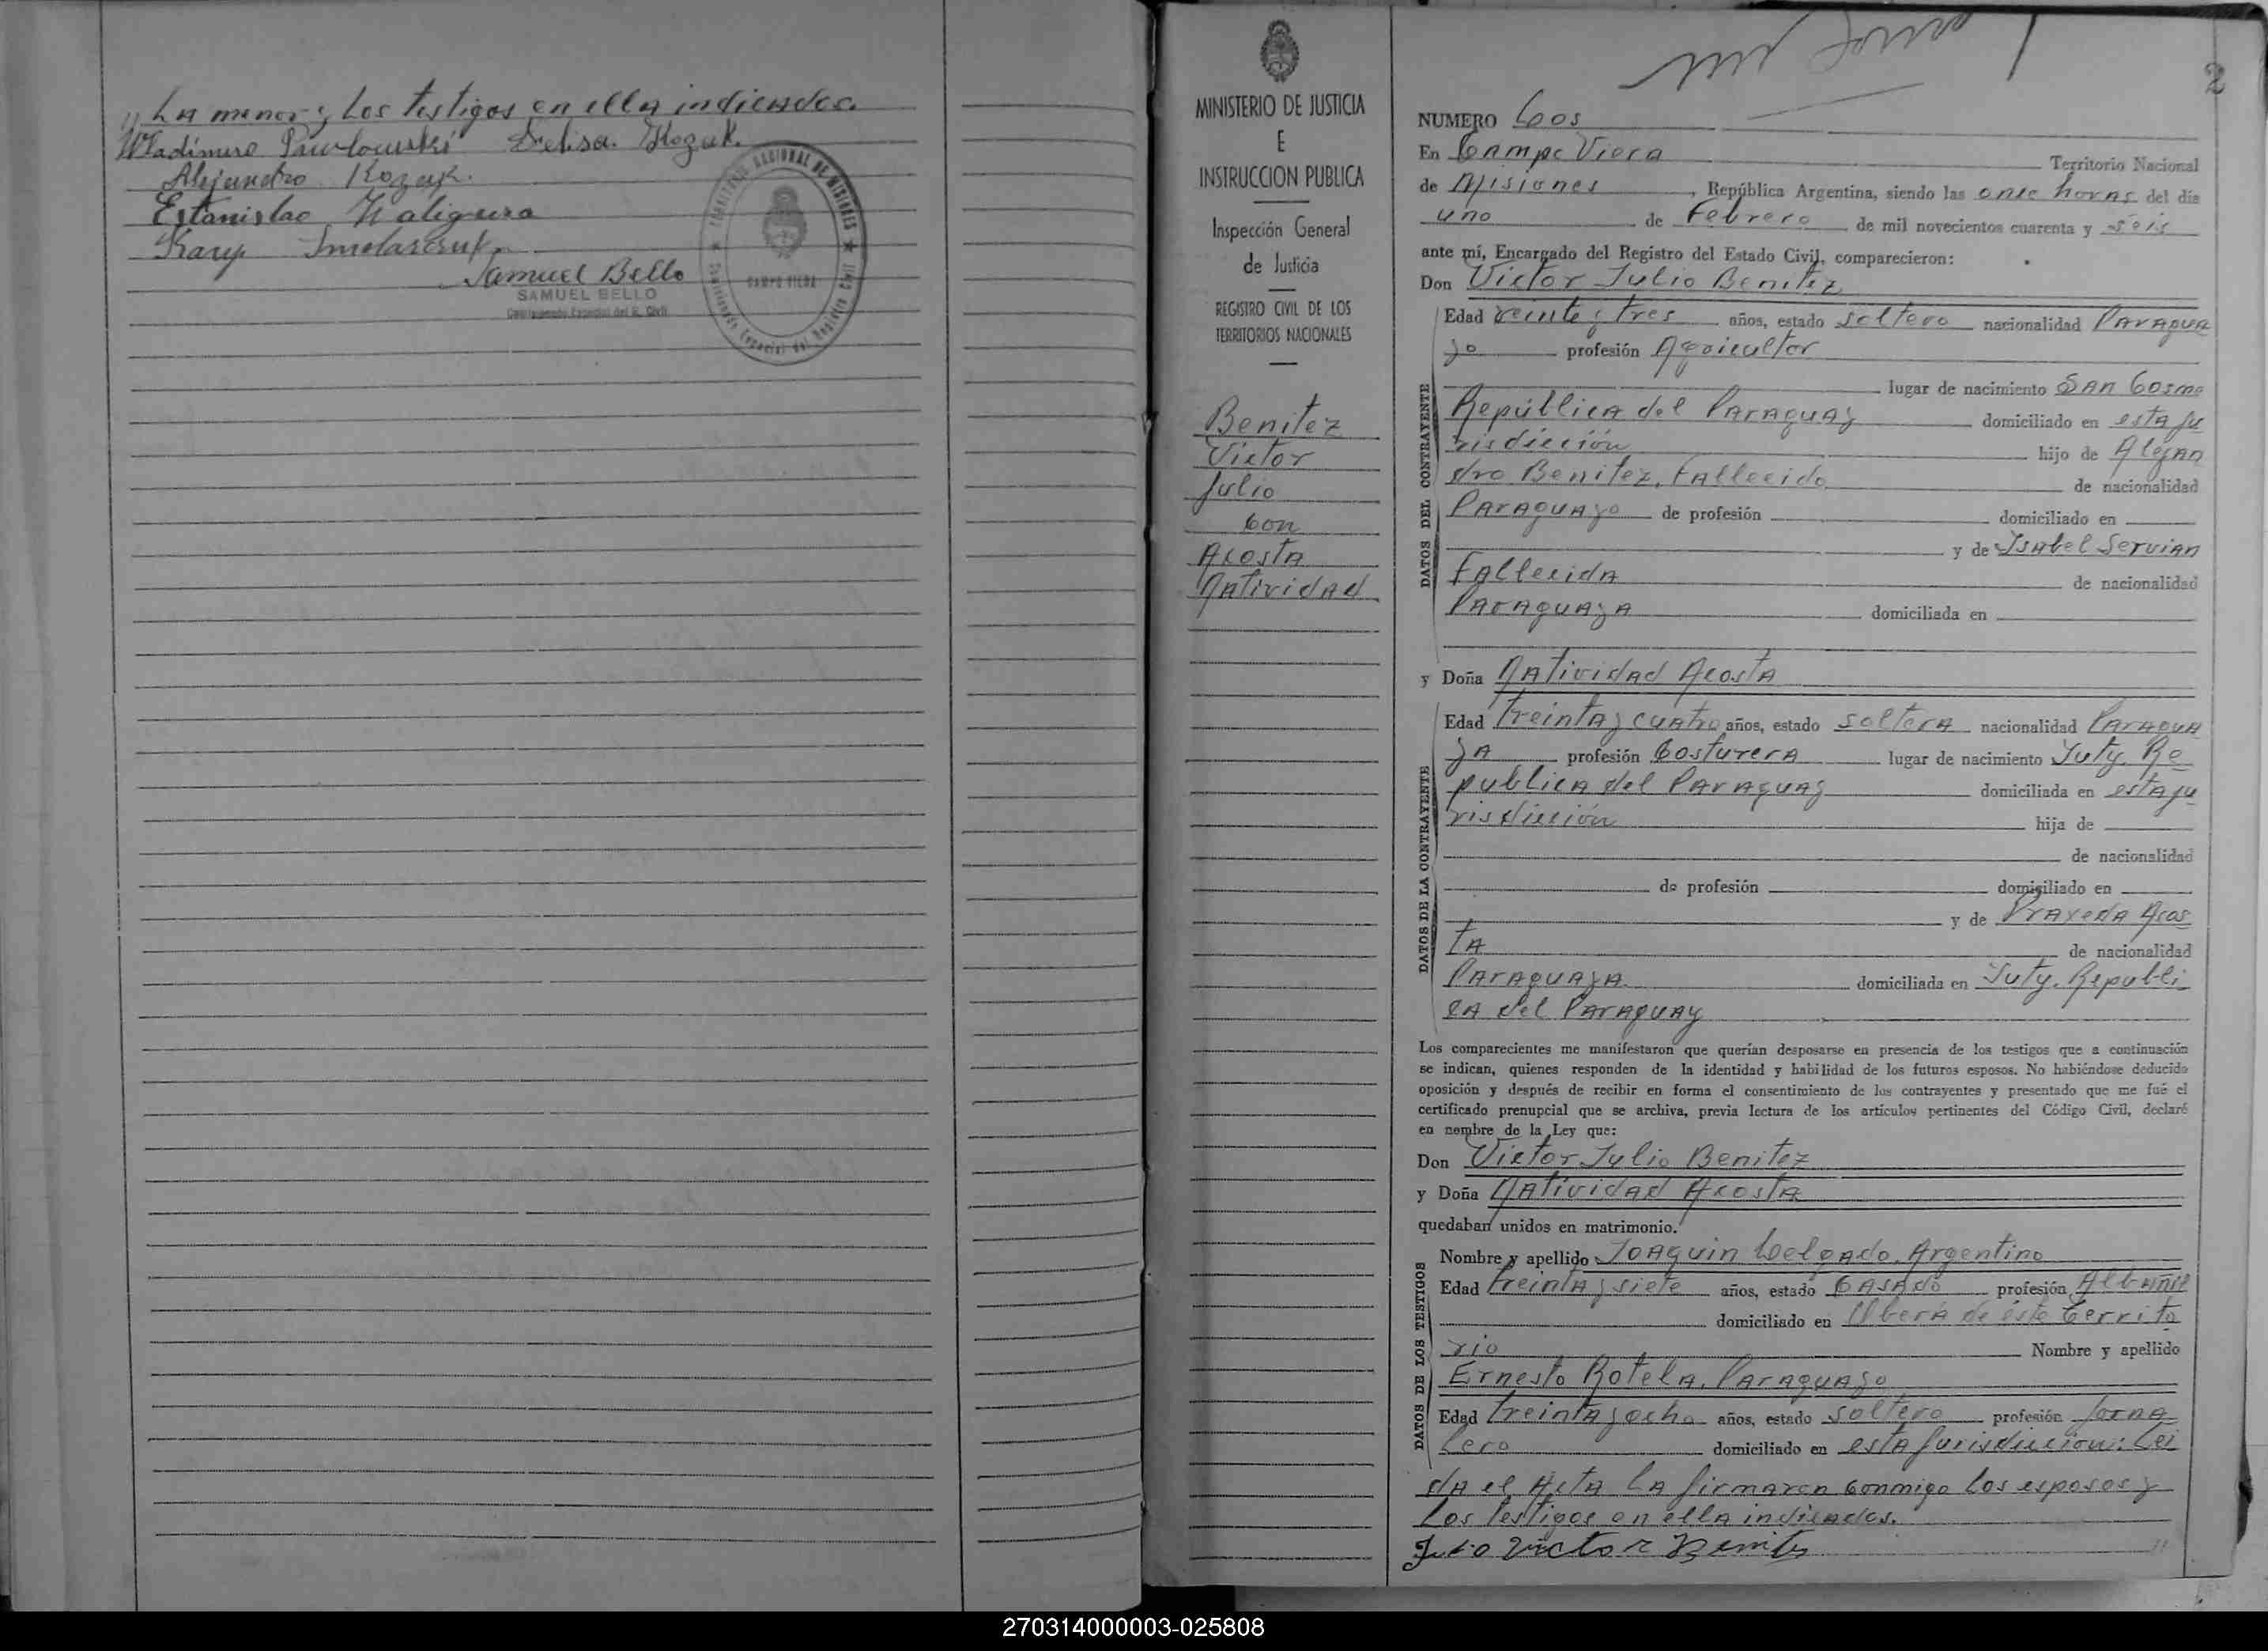 La menor y los testigos en ella indicados.
Wladimiro Pawlowski Delisa. Kozak.
Alejandro Kozak.
Estanislao
Karp
Samuel Bello
SAMUEL BELLO
Comisionado Especial del R. Civil
TERRITORIO NACIONAL DE MISIONES
CAMPO VIERA
Comisionado Especial del Registro Civil
MINISTERIO DE JUSTICIA
E
INSTRUCCION PUBLICA
Inspección General
de Justicia
REGISTRO CIVIL DE LOS
TERRITORIOS NACIONALES
Benitez
Victor
Julio
con
Acosta
Natividad
2
NUMERO Dos
En Campo Viera Territorio Nacional
de Misiones, República Argentina, siendo las once horas del día
uno de Febrero de mil novecientos cuarenta y seis
ante mí, Encargado del Registro del Estado Civil, comparecieron:
Don Victor Julio Benitez
DATOS DEL CONTRAYENTE
Edad veinte y tres años, estado soltero nacionalidad Paragua
yo profesión Agricultor
lugar de nacimiento San Cosme
República del Paraguay domiciliado en esta ju
risdicción hijo de Alejan
dro Benitez, Fallecido de nacionalidad
Paraguayo de profesión domiciliado en
y de Isabel Servian
Fallecida de nacionalidad
Paraguaya domiciliada en
y Doña Natividad Acosta
DATOS DE LA CONTRAYENTE
Edad treinta y cuatro años, estado soltera nacionalidad Paragua
ya profesión Costurera lugar de nacimiento Yuty, Re
publica del Paraguay domiciliada en esta ju
risdicción hija de
de nacionalidad
de profesión domiciliado en
y de Praxeda Acos
ta de nacionalidad
Paraguaya. domiciliada en Yuty, Republi
ca del Paraguay
Los comparecientes me manifestaron que querían desposarse en presencia de los testigos que a continuación
se indican, quienes responden de la identidad y habilidad de los futuros esposos. No habiéndose deducido
oposición y después de recibir en forma el consentimiento de los contrayentes y presentado que me fué el
certificado prenupcial que se archiva, previa lectura de los artículos pertinentes del Código Civil, declaré
en nombre de la Ley que:
Don Victor Julio Benitez
y Doña Natividad Acosta
quedaban unidos en matrimonio.
DATOS DE LOS TESTIGOS
Nombre y apellido Joaquin Delgado, Argentino
Edad treinta y siete años, estado Casado profesión Albañil
domiciliado en Oberá de éste Territo
rio Nombre y apellido
Ernesto Botela, Paraguayo
Edad treinta y ocho años, estado soltero profesión Jorna
lero domiciliado en esta jurisdicción: Lei
da el Acta la firmaron conmigo los esposos y
los testigos en ella indicados.
Julio Victor Benites
270314000003-025808